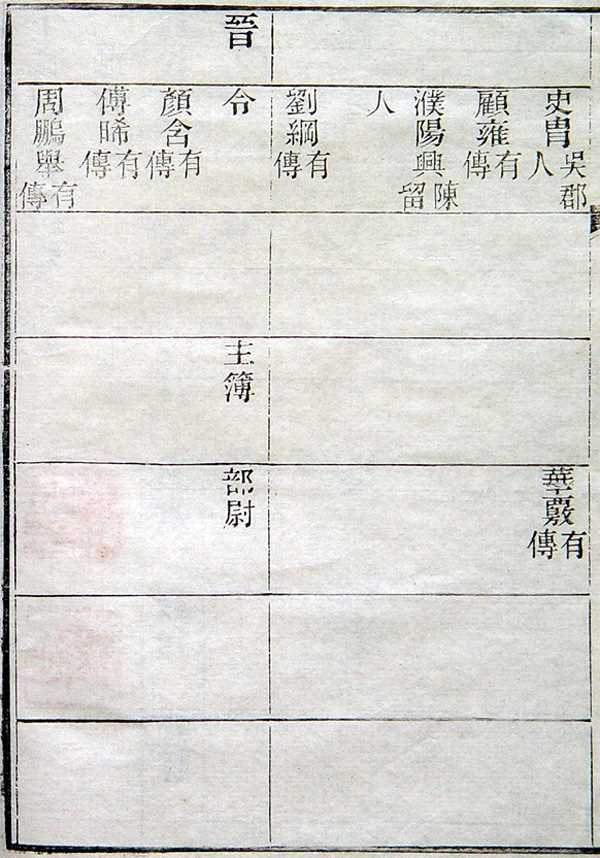 史胄吳郡人
華覈有傳
顧雍有傳
濮陽興陳留
人
劉綱有傳
晉
令
主簿
部尉
顏含有傳
傅晞有傳
周鵬舉有傳